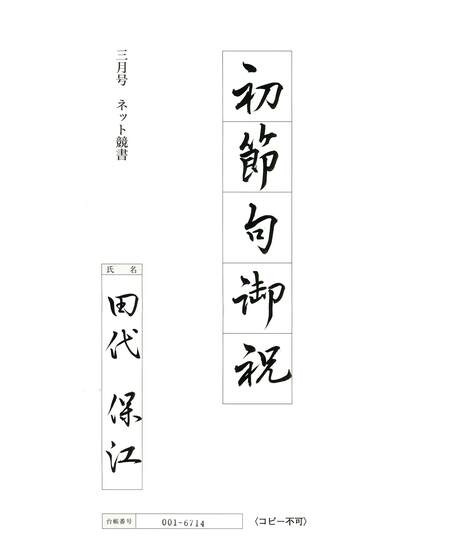 初節句御祝
三月号 ネット競書
氏名
田代 保江
台帳番号 001-6714
〈コピー不可〉